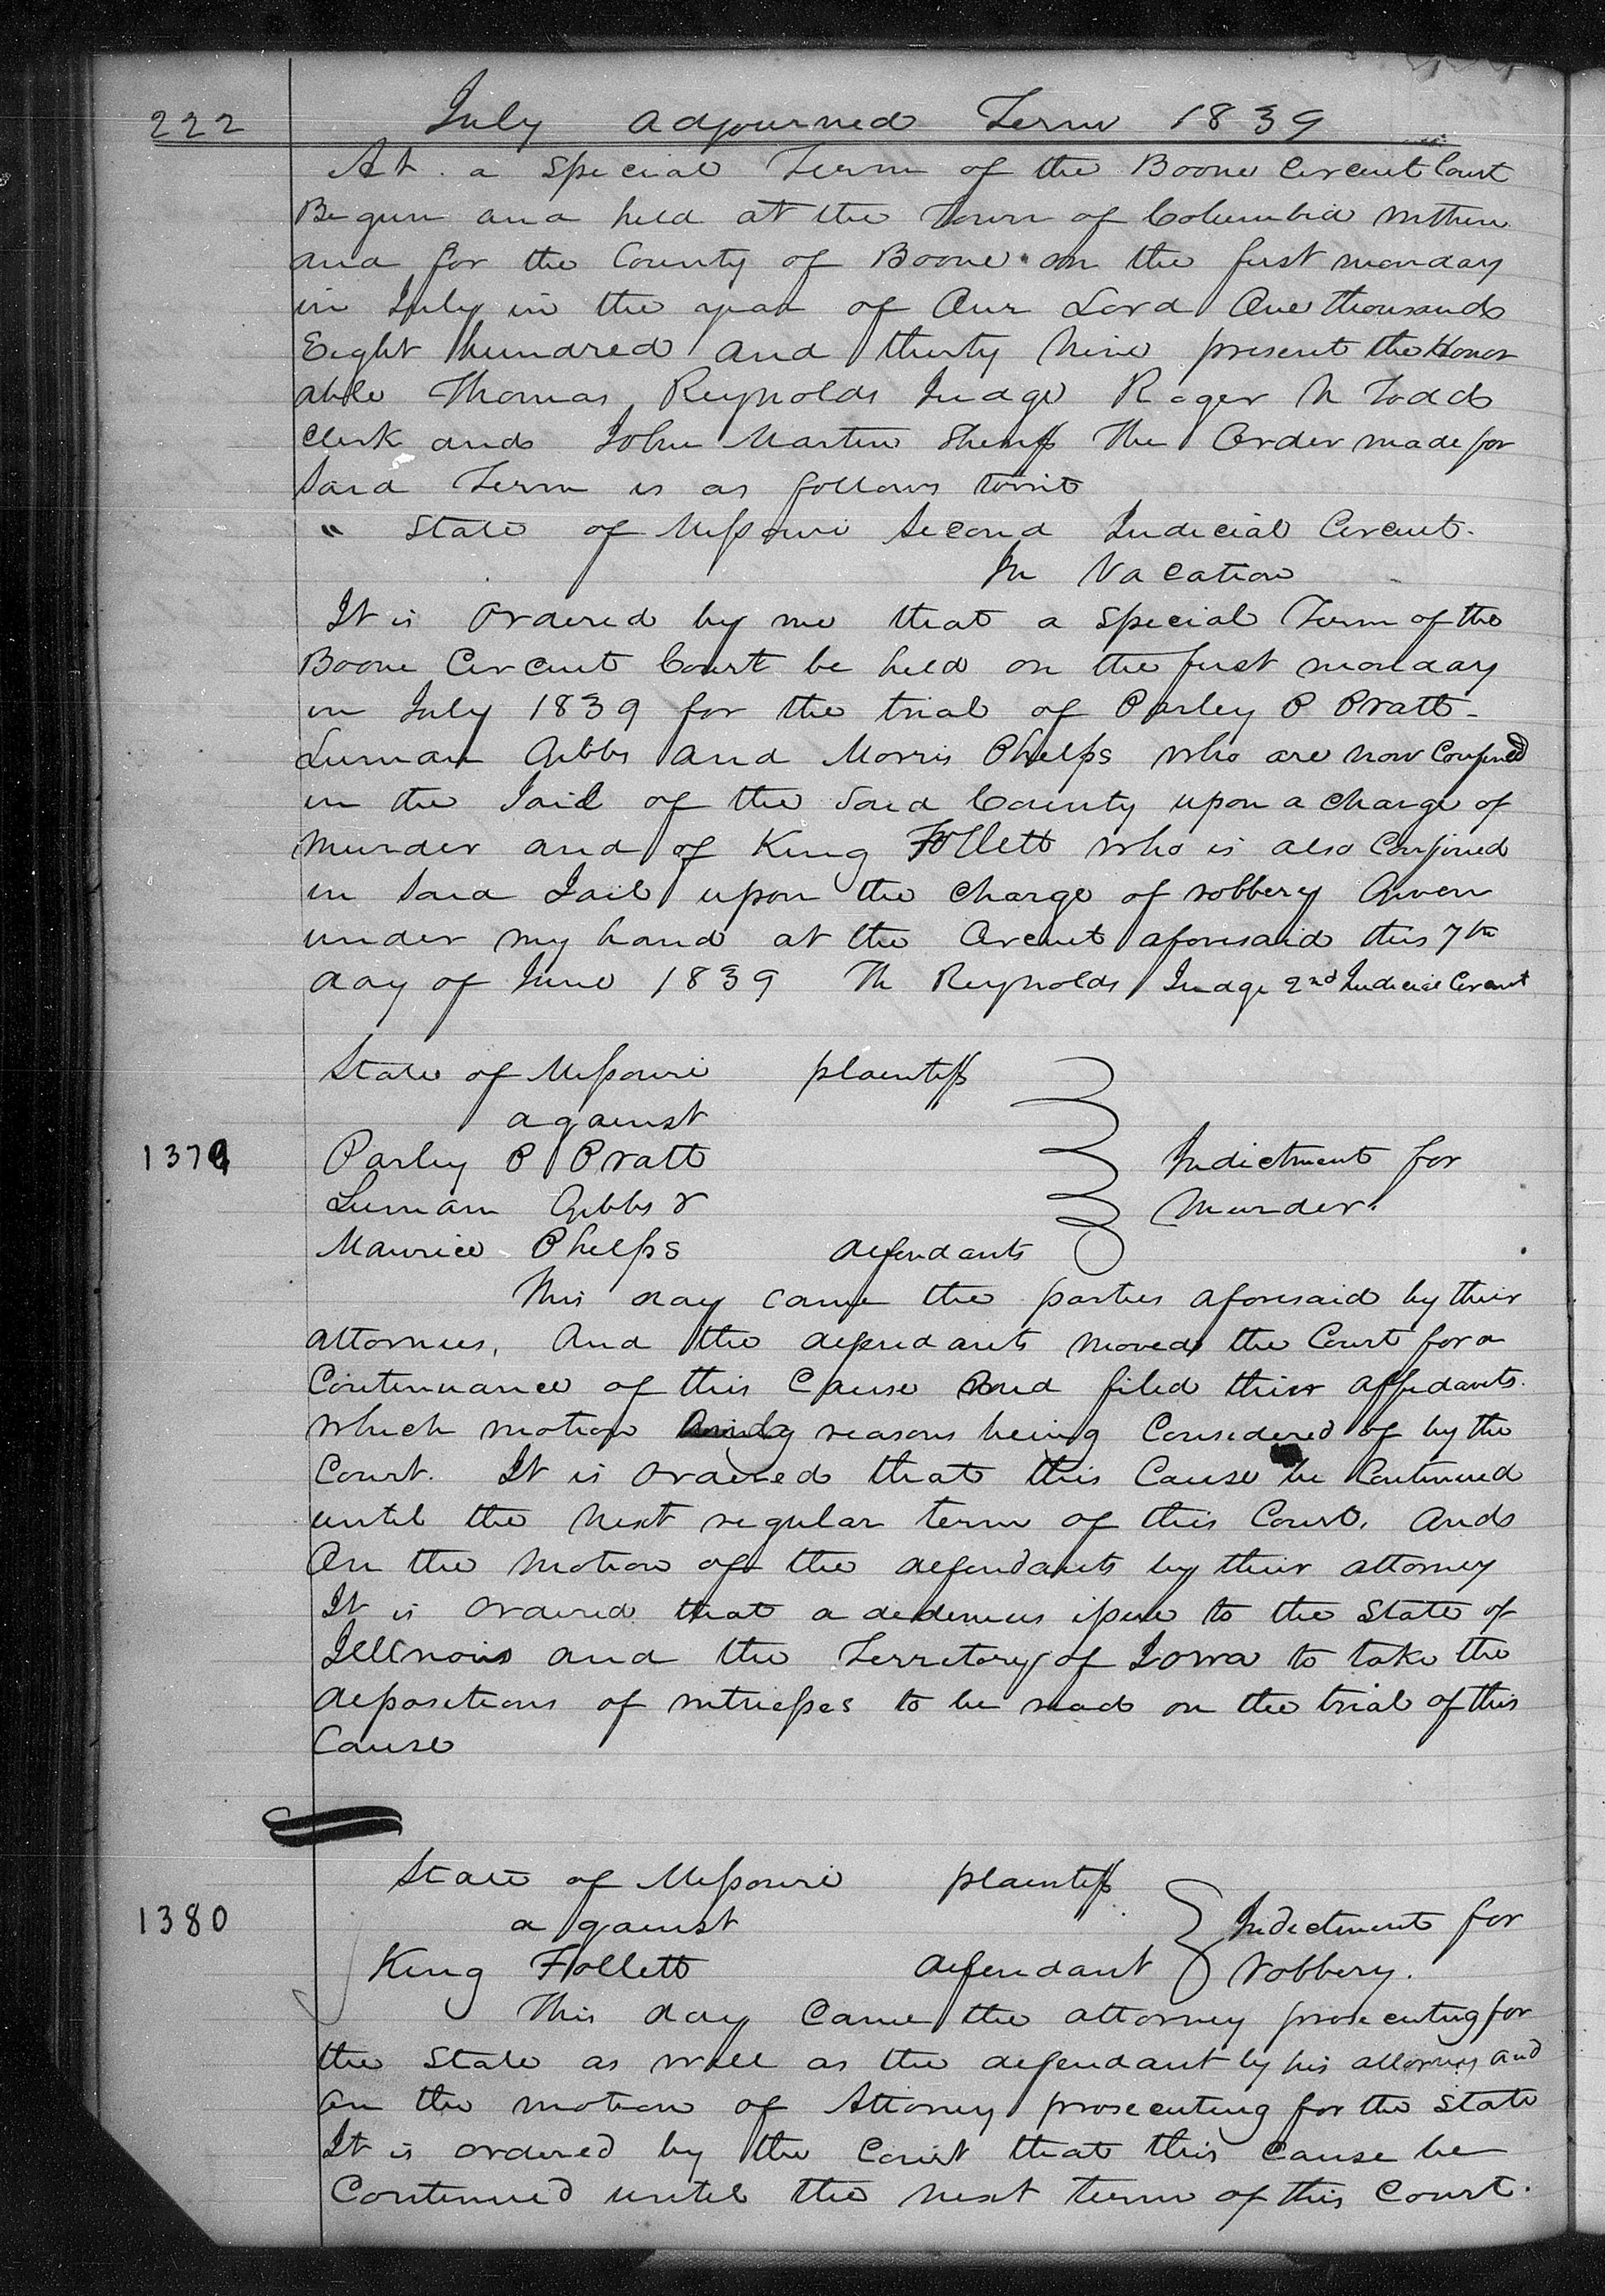 222 July adjourned Term 1839
At a Special Term of the Boone Circuit Court
Begun and held at the Town of Columbia within
and for the County of Boone on the first monday
in July in the year of Our Lord One thousand
Eight hundred and thirty Nine present the Honor
able Thomas Reynolds Judge Roger N Todd
Clerk and John Martin Sheriff The Order made for
Said Term is as follows towit
" State of Missouri Second Judicial Circuit.
In Vacation
It is Ordered by me that a Special Term of the
Boone Circuit Court be held on the first monday
in July 1839 for the trial of Parley P Pratt
Luman Gibbs and Morris Phelps who are now Confined
in the Jail of the Said County upon a charge of
Murder and of King Follett who is also Confined
in Said Jail upon the charge of robbery Given
under my hand at the Circuit aforesaid this 7th
day of June 1839 Th Reynolds Judge 2nd Judicial Circuit
State of Missouri plaintiff
against
1379 Parley P Pratt Indictment for
Luman Gibbs & Murder.
Maurice Phelps defendants
This day came the parties aforesaid by their
attornies, And the defendants moved the Court for a
Continuance of this Cause and filed their affidavits.
which motion reasons being Considered of by the
Court. It is Ordered that this Cause be Continued
until the Next regular term of this Court, And
On the Motion of the defendants by their attorney
It is Ordered that a dedimus issue to the State of
Illinois and the Territory of Iowa to take the
depositions of witnesses to be read on the trial of this
Cause
State of Missouri plaintiff
1380 against Indictment for
King Follett defendant robbery.
This day Came the attorney prosecuting for
the State as well as the defendant by his attorney and
On the motion of Attorney prosecuting for the State
It is ordered by the Court that this Cause be
Continued until the Next term of this Court.